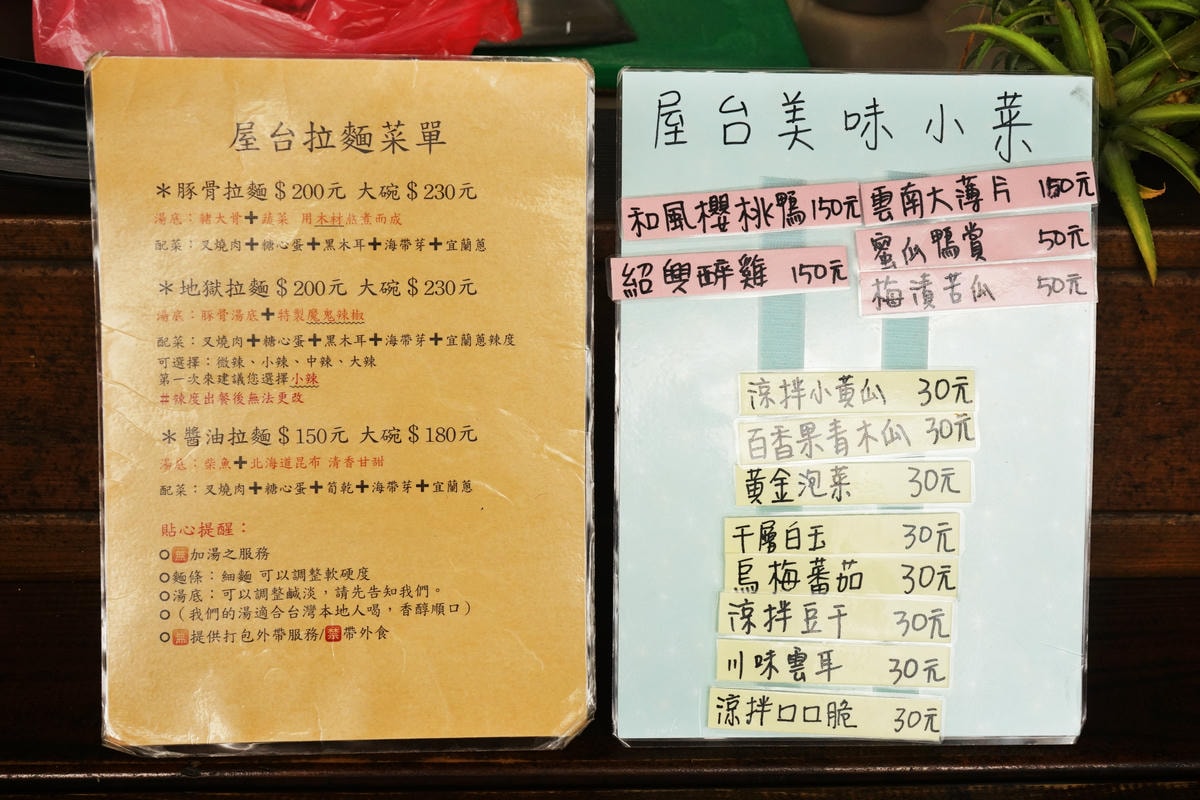 屋台拉麵菜單
＊豚骨拉麵＄200元 大碗＄230元
湯底：豬大骨➕蔬菜 用木材熬煮而成
配菜：叉燒肉➕糖心蛋➕黑木耳➕海帶芽➕宜蘭蔥
＊地獄拉麵＄200元 大碗＄230元
湯底：豚骨湯底➕特製魔鬼辣椒
配菜：叉燒肉➕糖心蛋➕黑木耳➕海帶芽➕宜蘭蔥辣度
可選擇：微辣、小辣、中辣、大辣
第一次來建議您選擇小辣
＃辣度出餐後無法更改
＊醬油拉麵＄150元 大碗＄180元
湯底：柴魚➕北海道昆布 清香甘甜
配菜：叉燒肉➕糖心蛋➕筍乾➕海帶芽➕宜蘭蔥
貼心提醒：
○無加湯之服務
○麵條：細麵 可以調整軟硬度
○湯底：可以調整鹹淡，請先告知我們。
○（我們的湯適合台灣本地人喝，香醇順口）
○無提供打包外帶服務/禁帶外食
屋台美味小菜
和風櫻桃鴨150元
紹興醉雞 150元
雲南大薄片 150元
蜜瓜鴨賞 50元
梅漬苦瓜 50元
涼拌小黃瓜 30元
百香果青木瓜 30元
黃金泡菜 30元
千層白玉 30元
烏梅蕃茄 30元
涼拌豆干 30元
川味雲耳 30元
涼拌口口脆 30元